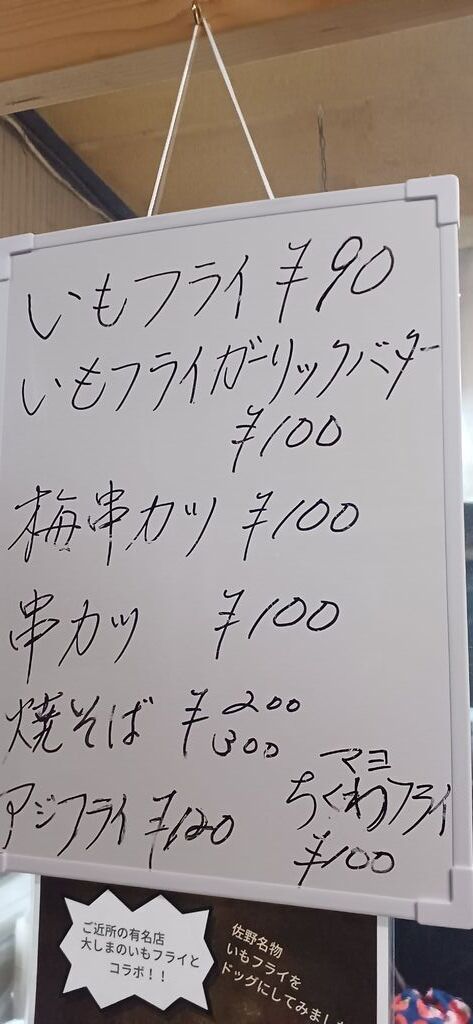 いもフライ ¥90
いもフライガーリックバター
¥100
梅串カツ ¥100
串カツ ¥100
焼そば ¥200
300
アジフライ ¥120
マヨ
ちくわフライ
¥100
ご近所の有名店
大しまのいもフライと
コラボ！！
佐野名物
いもフライを
ドッグにしてみまし